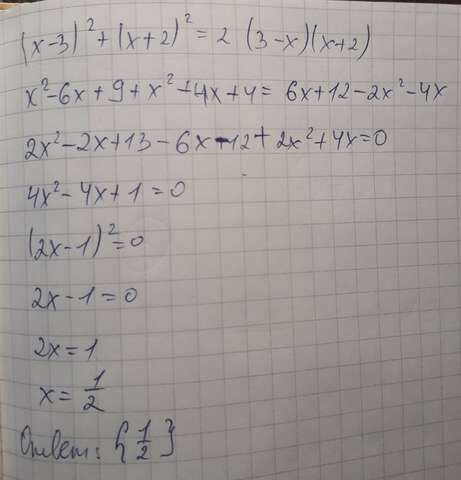 (x-3)²+(x+2)²=2 (3-x)(x+2)
x²-6x+9+x²+4x+4=6x+12-2x²-4x
2x²-2x+13-6x-12+2x²+4x=0
4x²-4x+1=0
(2x-1)²=0
2x-1=0
2x=1
x=1/2
Ответ: {1/2}